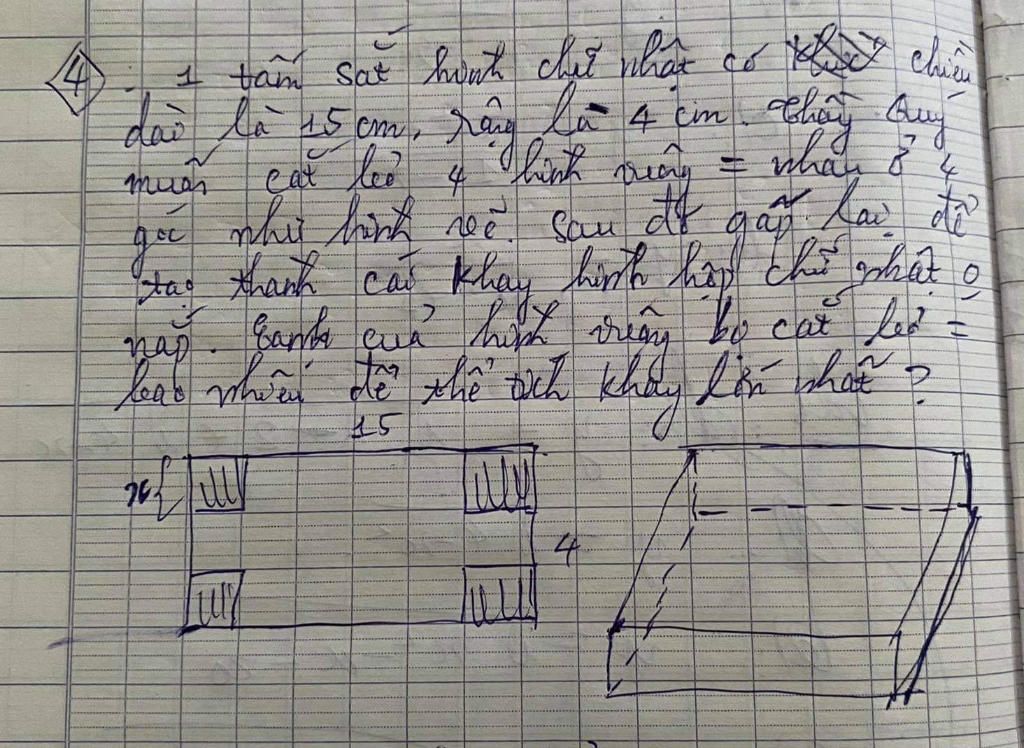 4. 1 tấm sắt hình chữ nhật có chiều
dài là 15 cm, rộng là 4 cm. Thầy Quý
muốn cắt bỏ 4 hình vuông = nhau ở 4
góc như hình vẽ. Sau đó gấp lại để
tạo thành cái khay hình hộp chữ nhật o
nắp. Cạnh của hình vuông bị cắt bỏ =
bao nhiêu để thể tích khay lớn nhất?
15
x
4